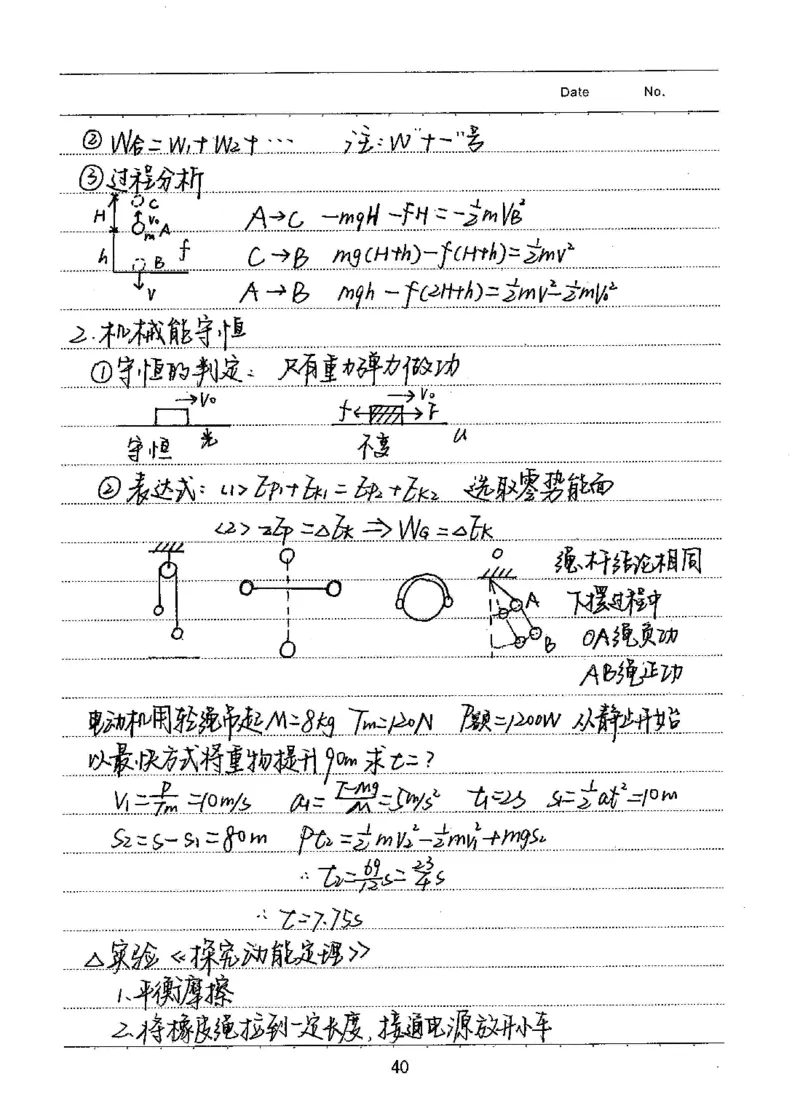 Date No.
② W合=W₁+W₂+… 注:W"+-"号
③过程分析
C
H V₀
m A
h B f
V
A→C -mgH-fH=-½mV_B²
C→B mg(H+h)-f(H+h)=½mv²
A→B mgh-f(2H+h)=½mv²-½mV₀²
2.机械能守恒
①守恒的判定:只有重力弹力做功
→V₀ →V₀
f F
守恒 光 不变 μ
②表达式:(1)Ep₁+Ek₁=Ep₂+Ek₂ 选取零势能面
(2) ΔEp=ΔEk⇒W_G=ΔEk
O 绳、杆结论相同
A 下摆过程中
B OA绳负功
AB绳正功
电动机用轻绳吊起M=8kg Tm=120N P额=1200W 从静止开始
以最快方式将重物提升90m求t=?
V₁=P/Tm=10m/s a₁=(T-Mg)/M=5m/s² t₁=2s s₁=½at²=10m
S₂=s-s₁=80m Pt₂=½mv₂²-½mv₁²+mgs₂
∴t₂=69/12s=23/4s
∴t=7.75s
△实验《探究动能定理》
1.平衡摩擦
2.将橡皮绳拉到一定长度,接通电源放开小车
40